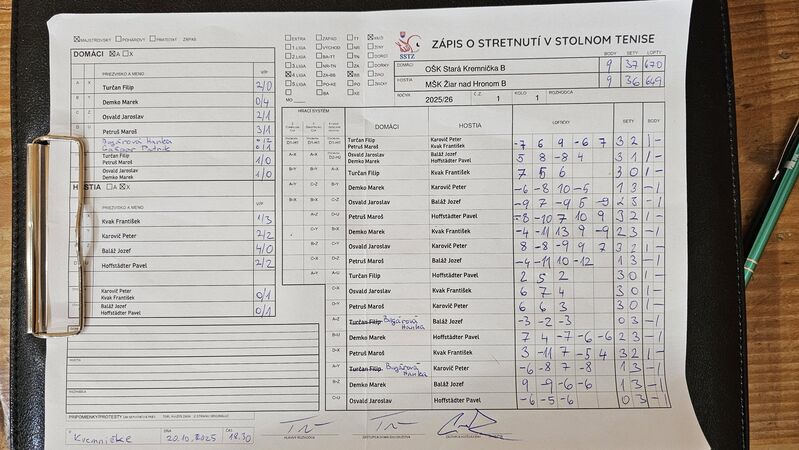 MAJSTROVSKÝ POHÁROVÝ PRIATEĽSKÝ ZÁPAS
DOMÁCI A X
PRIEZVISKO A MENO V/P
A X Turčan Filip 2/0
B Y Demko Marek 0/4
C Z Osvald Jaroslav 2/1
D U Petruš Maroš 3/1
Bugárová Hanka 0/2
Turčan Filip
Petruš Maroš 1/0
Osvald Jaroslav
Demko Marek 1/0
HOSTIA A X
PRIEZVISKO A MENO V/P
Kvak František 1/3
Karovič Peter 2/2
Baláž Jozef 4/0
Hoffstädter Pavel 2/2
Karovič Peter
Kvak František 0/1
Baláž Jozef
Hoffstädter Pavel 0/1
HOSTIA
ROZHODCA
PRIPOMIENKY/PROTESTY
Kremnička DŇA 20.10.2025 ČAS 18.30
EXTRA ZÁPAD TT MUŽI
1.LIGA VÝCHOD NR ŽENY
2.LIGA BA-TT ZA DORCI
3.LIGA NR-TN ZA DORKY
4.LIGA ZA-BB BB ŽIACI
5.LIGA PO-KE PO ŽIAČKY
BA KE
MO
SSTZ
ZÁPIS O STRETNUTÍ V STOLNOM TENISE
BODY SETY LOPTY
DOMÁCI OŠK Stará Kremnička B 9 37 670
HOSTIA MŠK Žiar nad Hronom B 9 36 649
ROČNÍK 2025/26 Č.Z. 1 KOLO 1 ROZHODCA
HRACÍ SYSTÉM
DOMÁCI HOSTIA LOPTIČKY SETY BODY
Turčan Filip Karovič Peter
Petruš Maroš Kvak František -7 6 9 -6 7 3 2 1 -
Osvald Jaroslav Baláž Jozef
Demko Marek Hoffstädter Pavel 5 8 -8 4 3 1 1 -
Turčan Filip Kvak František 7 5 6 3 0 1 -
Demko Marek Karovič Peter -6 -8 10 -5 1 3 - 1
Osvald Jaroslav Baláž Jozef -9 7 -9 5 -9 2 3 - 1
Petruš Maroš Hoffstädter Pavel -8 -10 7 10 9 3 2 1 -
Demko Marek Kvak František -4 -11 13 9 -9 2 3 - 1
Osvald Jaroslav Karovič Peter 8 -8 -9 9 7 3 2 1 -
Petruš Maroš Baláž Jozef -4 -11 10 -12 1 3 - 1
Turčan Filip Hoffstädter Pavel 2 5 2 3 0 1 -
Osvald Jaroslav Kvak František 6 7 4 3 0 1 -
Petruš Maroš Karovič Peter 6 6 3 3 0 1 -
A-Z Turčan Filip Bugárová Hanka Baláž Jozef -3 -2 -3 0 3 - 1
B-U Demko Marek Hoffstädter Pavel 7 4 -7 -6 -6 2 3 - 1
D-X Petruš Maroš Kvak František 3 -11 7 -5 4 3 2 1 -
A-Y Turčan Filip Bugárová Hanka Karovič Peter -6 -8 7 -8 1 3 - 1
B-Z Demko Marek Baláž Jozef 9 -9 -6 -6 1 3 - 1
C-U Osvald Jaroslav Hoffstädter Pavel -6 -5 -6 0 3 - 1
HLAVNÝ ROZHODCA